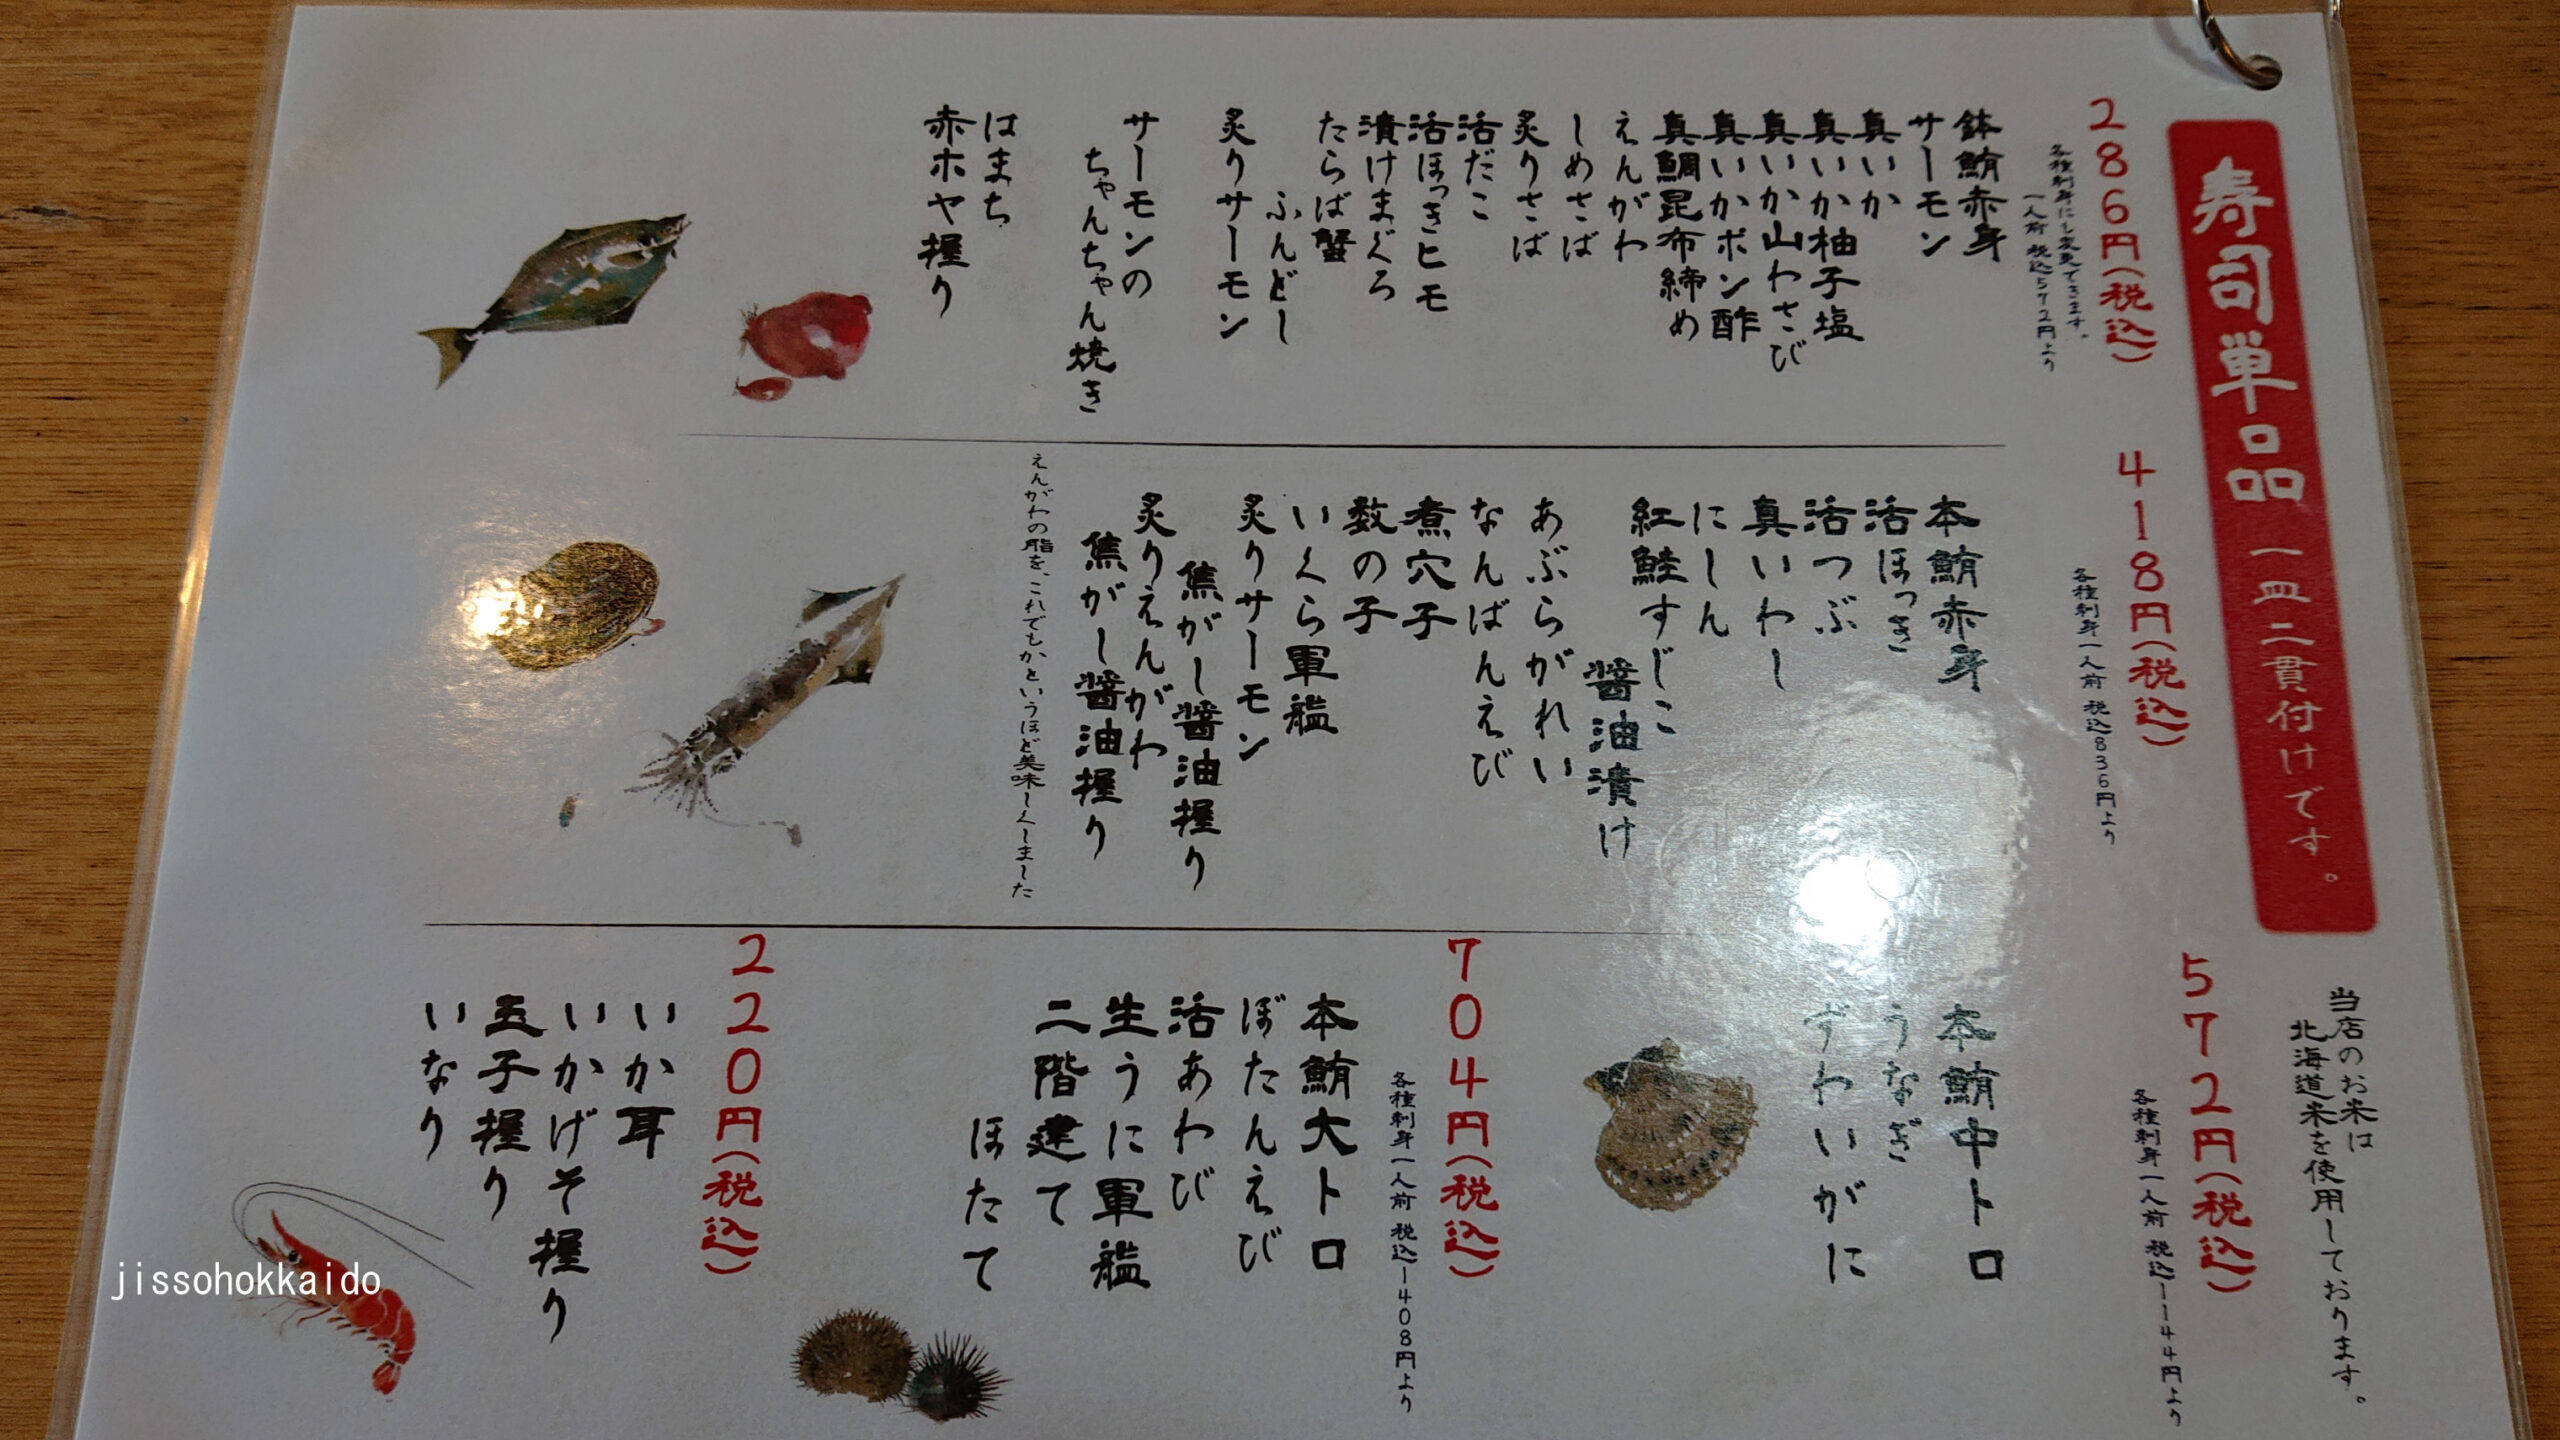 寿司単品 一皿二貫付けです。
当店のお米は
北海道米を使用しております。
286円(税込)
各種刺身にも変更できます。
一人前 税込572円より
鉢鮪赤身
サーモン
真いか
真いか柚子塩
真いか山わさび
真いかポン酢
真鯛昆布締め
えんがわ
しめさば
炙りさば
活だこ
活ほっきヒモ
漬けまぐろ
たらば蟹
ふんどし
炙りサーモン
サーモンの
ちゃんちゃん焼き
はまち
赤ホヤ握り
418円(税込)
各種刺身一人前 税込836円より
本鮪赤身
活ほっき
活つぶ
真いわし
にしん
紅鮭すじこ
醤油漬け
あぶらがれい
なんばんえび
煮穴子
数の子
いくら軍艦
炙りサーモン
焦がし醤油握り
炙りえんがわ
焦がし醤油握り
えんがわの脂を、これでもかというほど美味しくしました
572円(税込)
各種刺身一人前 税込1144円より
本鮪中トロ
うなぎ
ずわいがに
704円(税込)
各種刺身一人前 税込1408円より
本鮪大トロ
ぼたんえび
活あわび
生うに軍艦
二階建て
ほたて
220円(税込)
いか耳
いかげそ握り
玉子握り
いなり
jissohokkaido